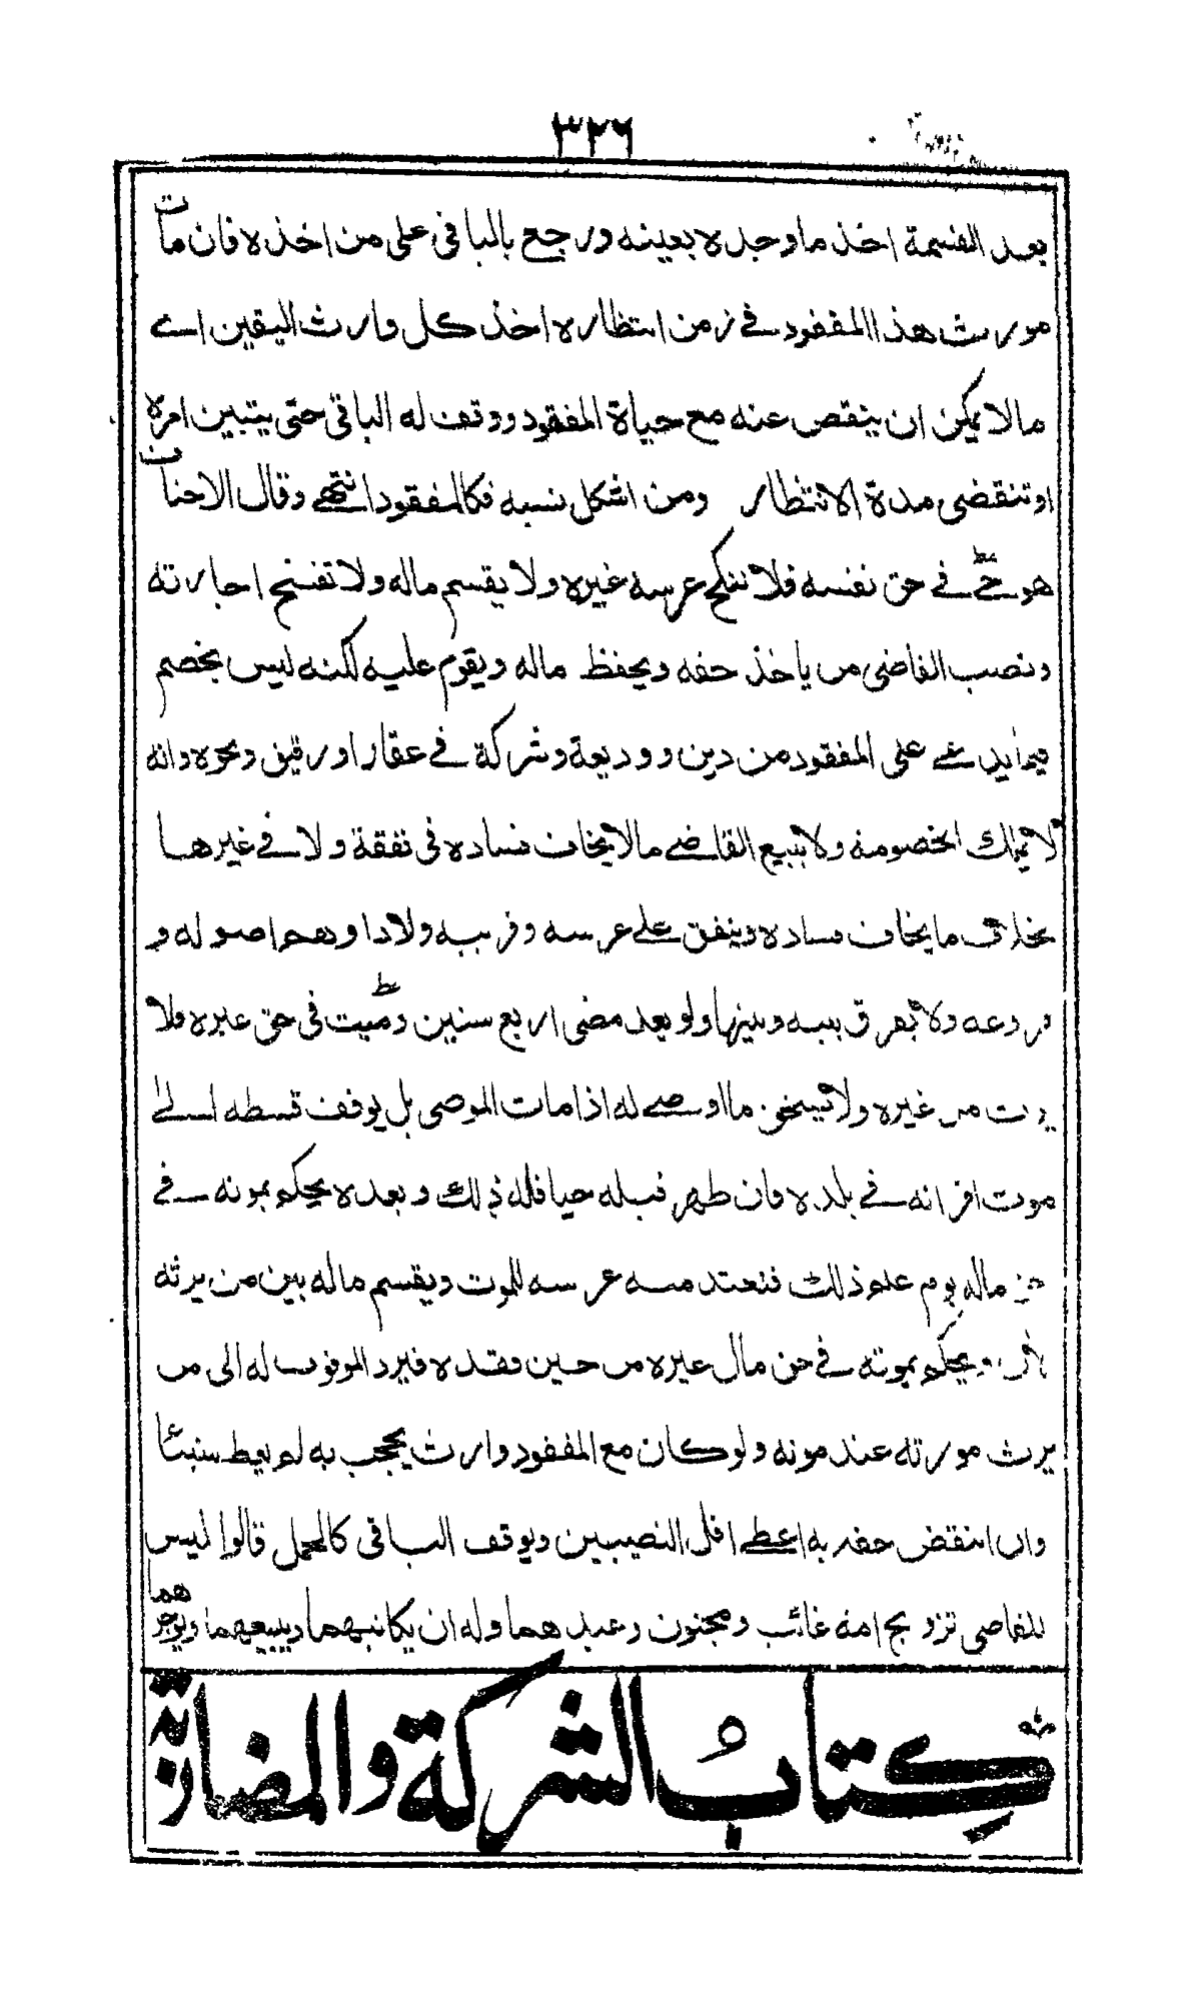 ٣٢٦
بعد القسمة اخذ ما وجده بعينه ورجع بالباقي على من اخذه فان مات
مورث هذا المفقود في زمن انتظاره اخذ كل وارث اليقين اے
ما لا يمكن ان ينقص عنه مع حياة المفقود ووقف له الباقي حتى يتبين امره
او تنقضي مدة الانتظار ومن اشكل نسبه فكالمفقود انتهے وقال الاحناف
هو حي في حق نفسه فلا ننكح عرسه غيره ولا يقسم ماله ولا تفسخ اجارته
ونصب القاضي من ياخذ حقه ويحفظ ماله ويقوم عليه لكنه ليس بخصم
فيما يدعے على المفقود من دين ووديعة وشركة في عقار او رقيق ونحوه وانه
لا يملك الخصومة ولا يبيع القاضے مالا يخاف فساده في نفقة ولا في غيرها
بخلاف ما يخاف فساده وينفق علے عرسه وقريبه ولادا وهم اصوله و
فروعه ولا يفرق بينه وبينها ولو بعد مضي اربع سنين وميت في حق غيره فلا
يرث من غيره ولا يستحق ما اوصے له اذا مات الموصي بل يوقف قسطه الے
موت اقرانه في بلده فان ظهر قبله حيا فله ذلك وبعده يحكم بموته في
حق ماله يوم علم ذلك فتعتد منه عرسه للموت ويقسم ماله بين من يرثه
الآن ويحكم بموته في حق مال غيره من حين فقده فيرد الموقوف له الى من
يرث مورثه عند موته ولو كان مع المفقود وارث يحجب به لم يعط شيئا
وان انتقض حقه به اعطے اقل النصيبين ويوقف الباقي كالحمل قالوا ليس
للقاضي تزويج امة غائب ومجنون وعبدهما وله ان يكاتبهما ويبيعهما ويوجرهما
كتاب الشركة والمضاربة